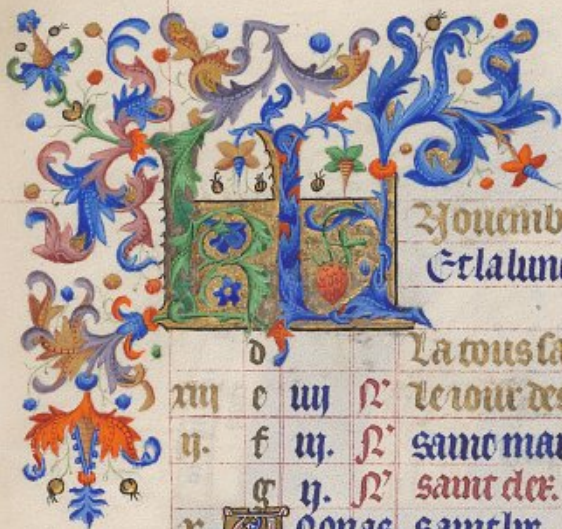 KL
Nouemb
Et la lune
d La tous sa
xiii e iiij N. le iour des
ij. f iij. N. saint mar
g ij. N. saint cler.
x. A nonas saint